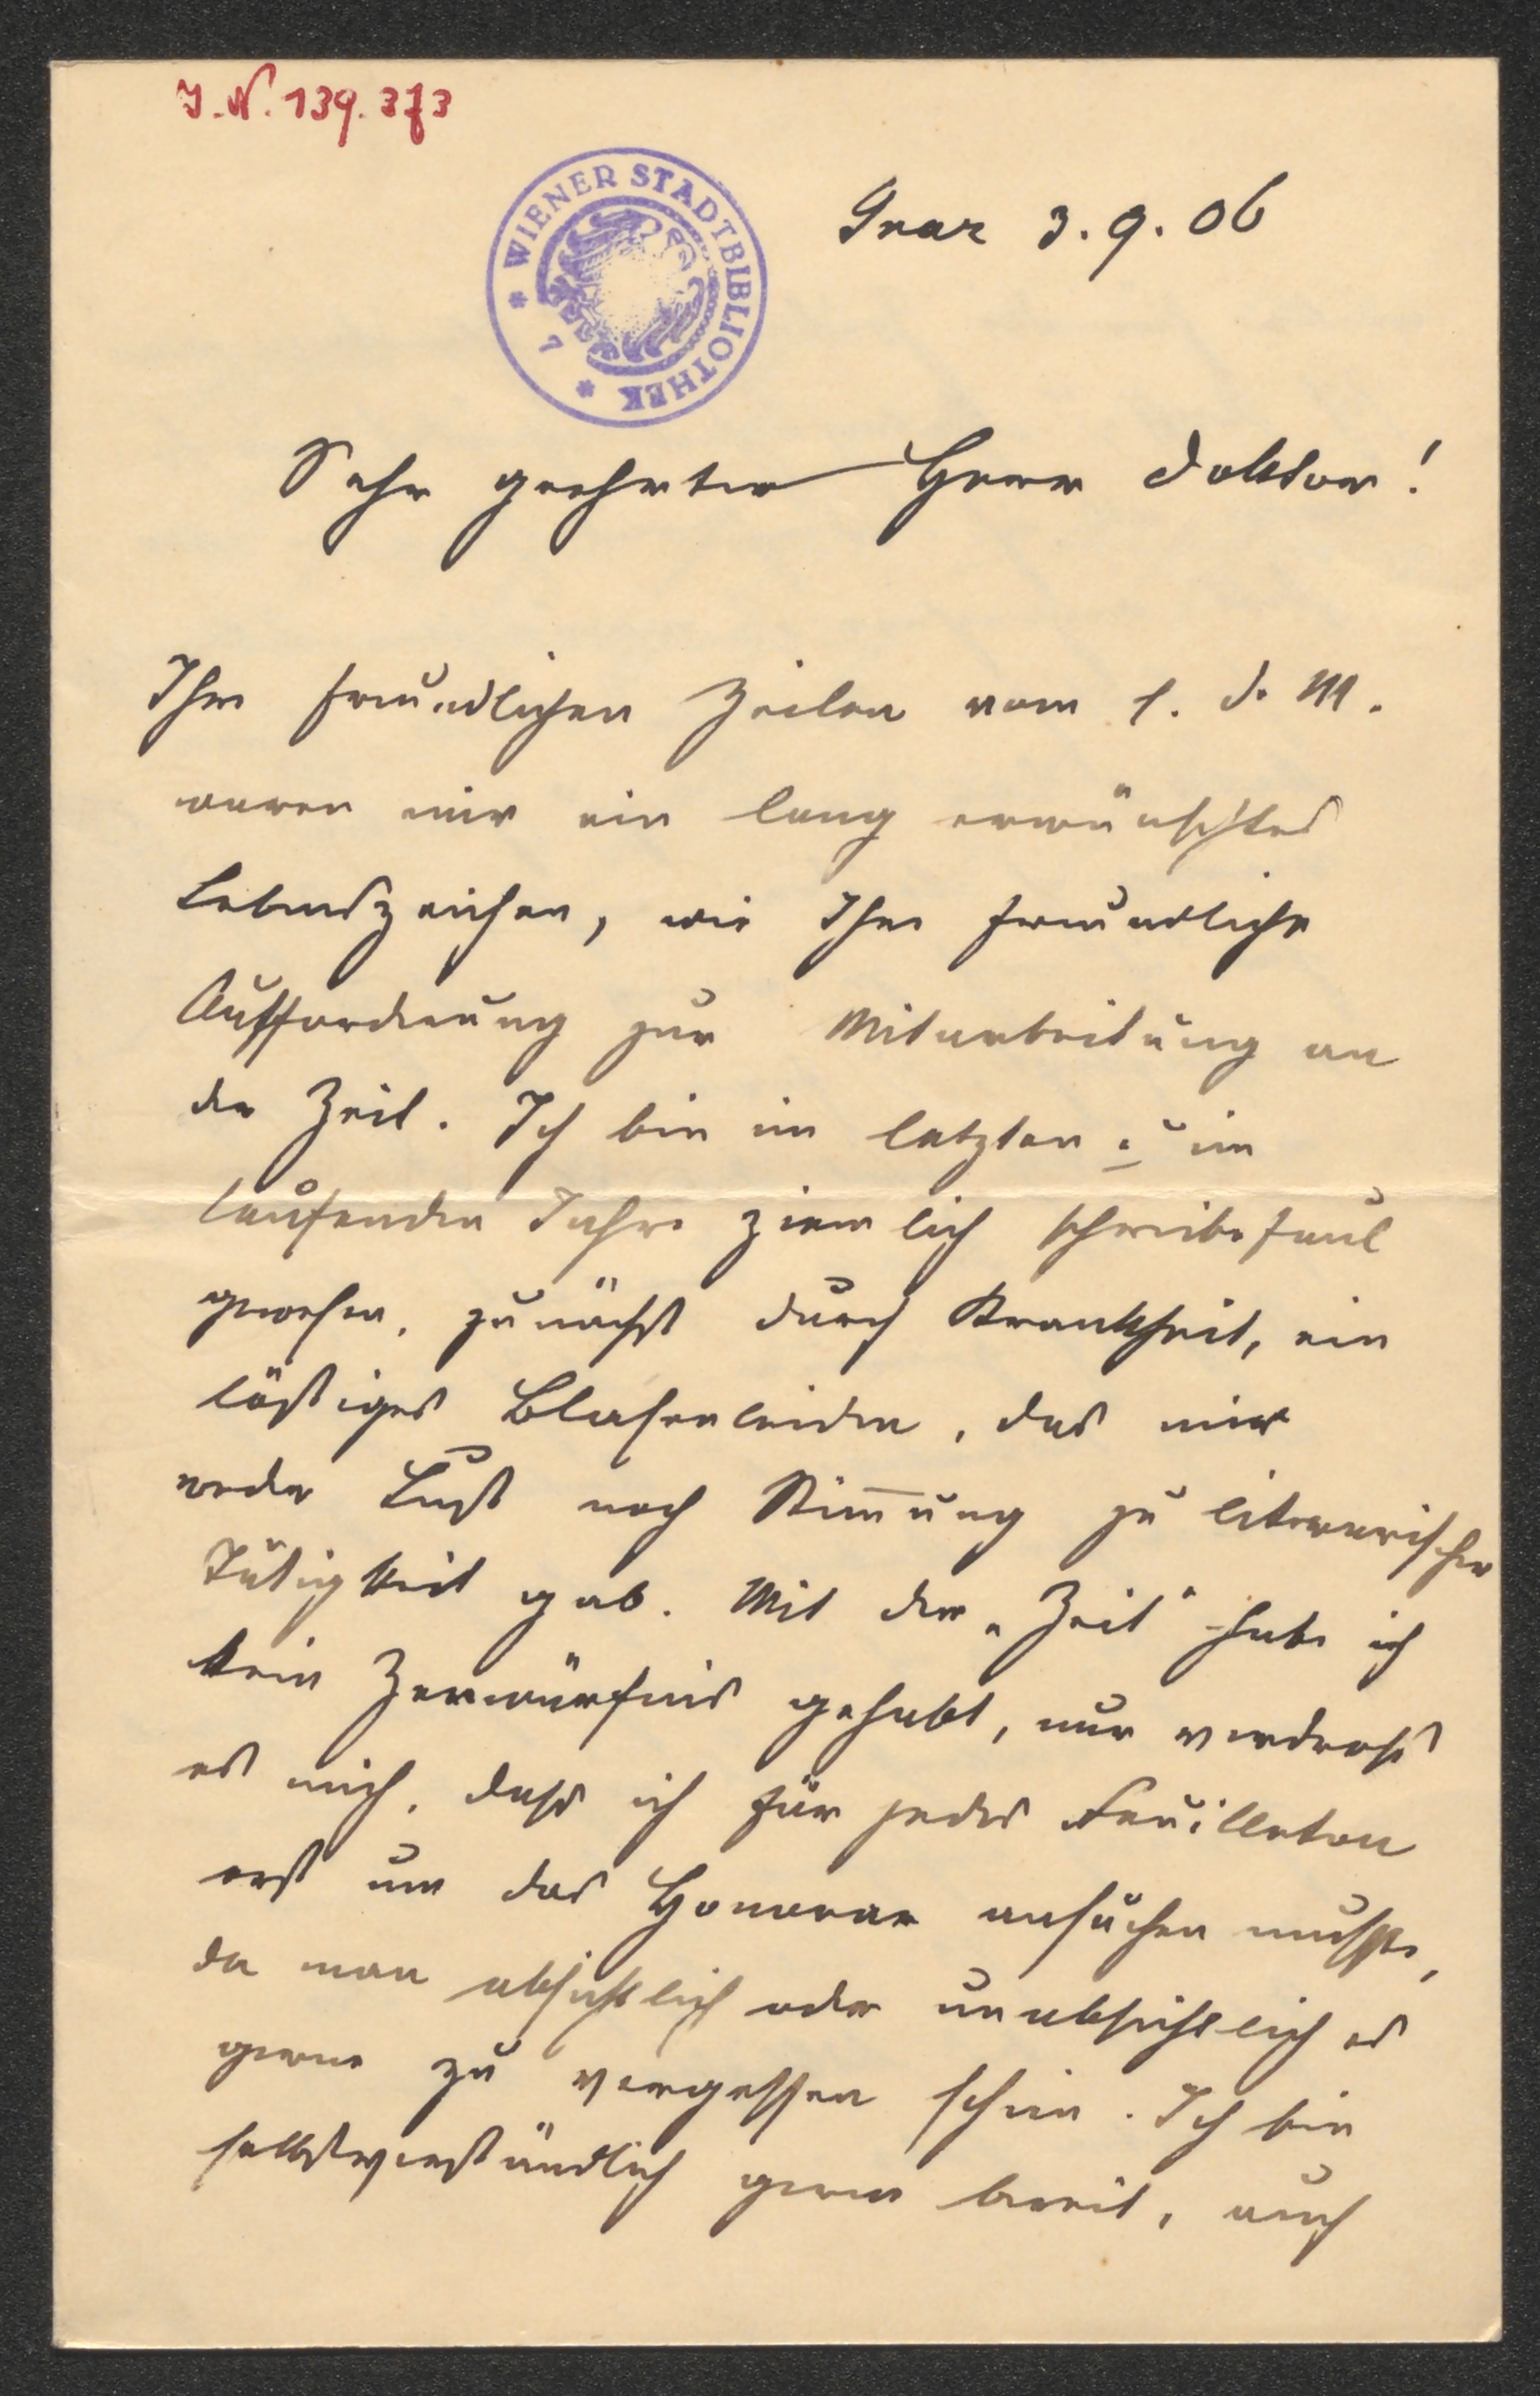 I.N. 139.373
WIENER STADTBIBLIOTHEK
7
Graz 3.9.06
Sehr geehrter Herr Doktor!
Ihre freundlichen Zeilen vom 1. d. M.
waren mir ein lang erwünschtes
Lebenszeichen, wie Ihre freundliche
Aufforderung zur Mitarbeitung an
der Zeit. Ich bin im letzten u. im
laufenden Jahre ziemlich schreibefaul
gewesen, zunächst durch Krankheit, ein
lästiges Blasenleiden, das mir
weder Lust noch Stimmung zu literarischer
Tätigkeit gab. Mit der „Zeit“ habe ich
kein Zerwürfnis gehabt, nur verdross
es mich, dass ich für jedes Feuilleton
erst um das Honorar ansuchen musste,
da man absichtlich oder unabsichtlich es
gerne zu vergessen schien. Ich bin
selbstverständlich gerne bereit, auch